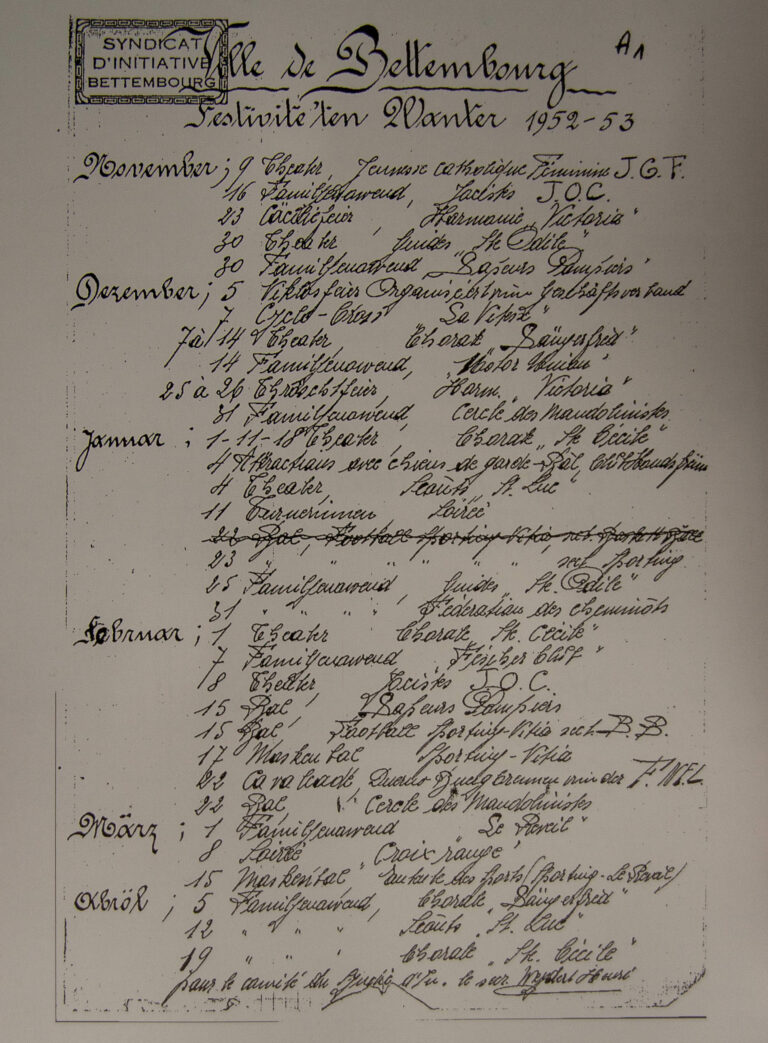 SYNDICAT
D'INITIATIVE
BETTEMBOURG
A1
Ville de Bettembourg
Festivité'ten Wanter 1952-53
November; 9 Theater, Jeunesse Catholique Féminine J.G.F.
16 Familjenowend, Jacistes J.O.C.
23 Cäciliefeier, Harmonie „Victoria"
30 Theater Guides „Ste Odile"
30 Familjenowend „Sapeurs Pompiers"
Dezember; 5 Geschäftsverband
7 Cyclo-Cross „La Vitesse"
7 à 14 Theater, Chorale „Sängerfréd"
14 Familjenowend, „Motor Union"
25 à 26 Chröschtfeier, Harm. „Victoria"
31 Familjenowend, Cercle des Mandolinistes
Januar; 1-11-18 Theater, Chorale „Ste Cécile"
4 Attractions avec chiens de garde-Bal,
4 Theater, Scouts „St. Luc"
11 Turnerinnen Soirée
22 Bal, Football Sporting-Vitia, sect.
23 " " " " " " sect Sporting
25 Familjenowend, Guides „Ste Odile"
31 " " " " Fédération des cheminots
Februar; 1 Theater Chorale „Ste Cécile"
7 Familjenowend „Fischer Club"
8 Theater, Jacistes J.O.C.
15 Bal, Sapeurs Pompiers
15 Bal, Football Sporting-Vitia sect. B.B.
17 Maskenbal Sporting-Vitia
22 Cavalcade, vun der F.N.E.L
22 Bal, Cercle des Mandolinistes
März; 1 Familjenowend „Le Réveil"
8 Soirée „Croix rouge"
15 Maskenbal, Entente des Sports (Sporting-Le Réveil)
Abröl; 5 Familjenowend, Chorale „Sängerfréd"
12 " " " " Scouts „St. Luc"
19 " " " Chorale „Ste. Cécile"
pour le comité du d'In. le secr